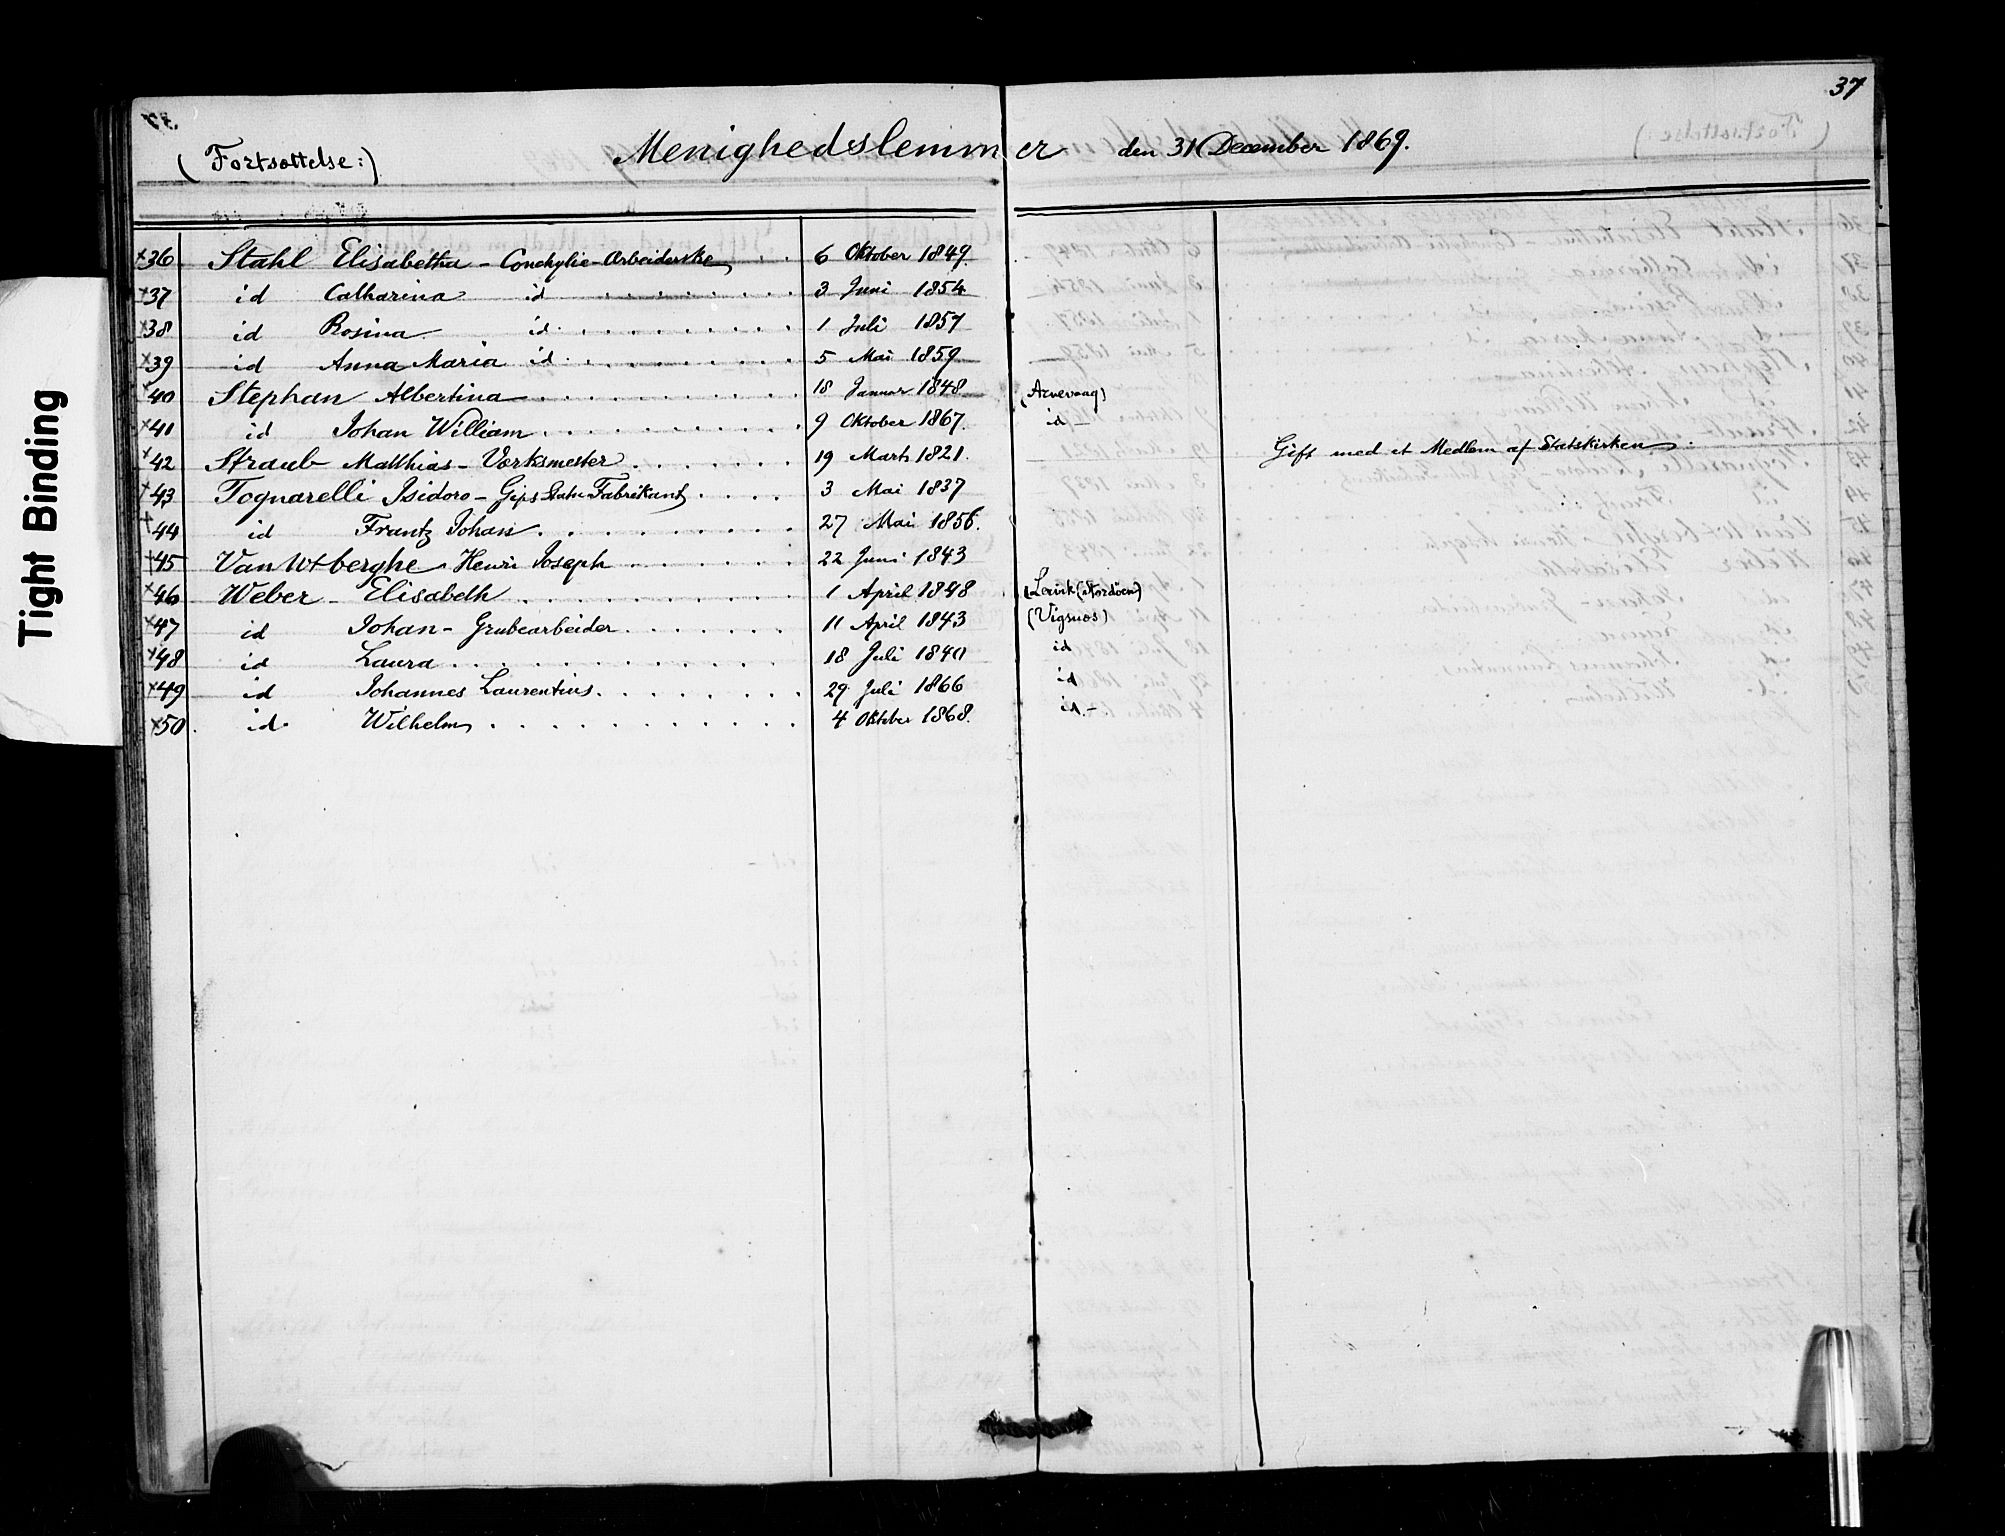 37
(Fortsættelse:) Menighedslemmer den 31 December 1869.
+36 Stahl Elisabetha - Conchylie-Arbeiderske . . 6 Oktober 1849.
+37 id Catharina id . . . . . . . . 3 Juni 1854
+38 id Rosina id . . . . . . . . . 1 Juli 1857
+39 id Anna Maria id . . . . . . . . 5 Mai 1859
+40 Stephan Albertina . . . . . . . . . . 18 Januar 1848 (Arnevaag)
+41 id Johan William . . . . . . . . . . 9 Oktober 1867. id -
+42 Straub Matthias - Værksmester . . . . . . 19 Marts 1821. Gift med et Medlem af Statskirken.
+43 Tognarelli Isidoro - Gips Fabrikant . . . . 3 Mai 1837
+44 id Frantz Johan . . . . . . . . . . 27 Mai 1856.
+45 Henri Joseph . . . . . . . 22 Juni 1843
+46 Weber - Elisabeth . . . . . . . . . . 1 April 1848
+47 id Johan - Grubearbeider . . . . . . . 11 April 1843 (Vigsnæs)
+48 id Laura . . . . . . . . . . . 18 Juli 1840 id
+49 id Johannes Laurentius . . . . . . . . 29 Juli 1866 id
+50 id Wilhelm . . . . . . . . . . . 4 Oktober 1868. id -
Tight Binding